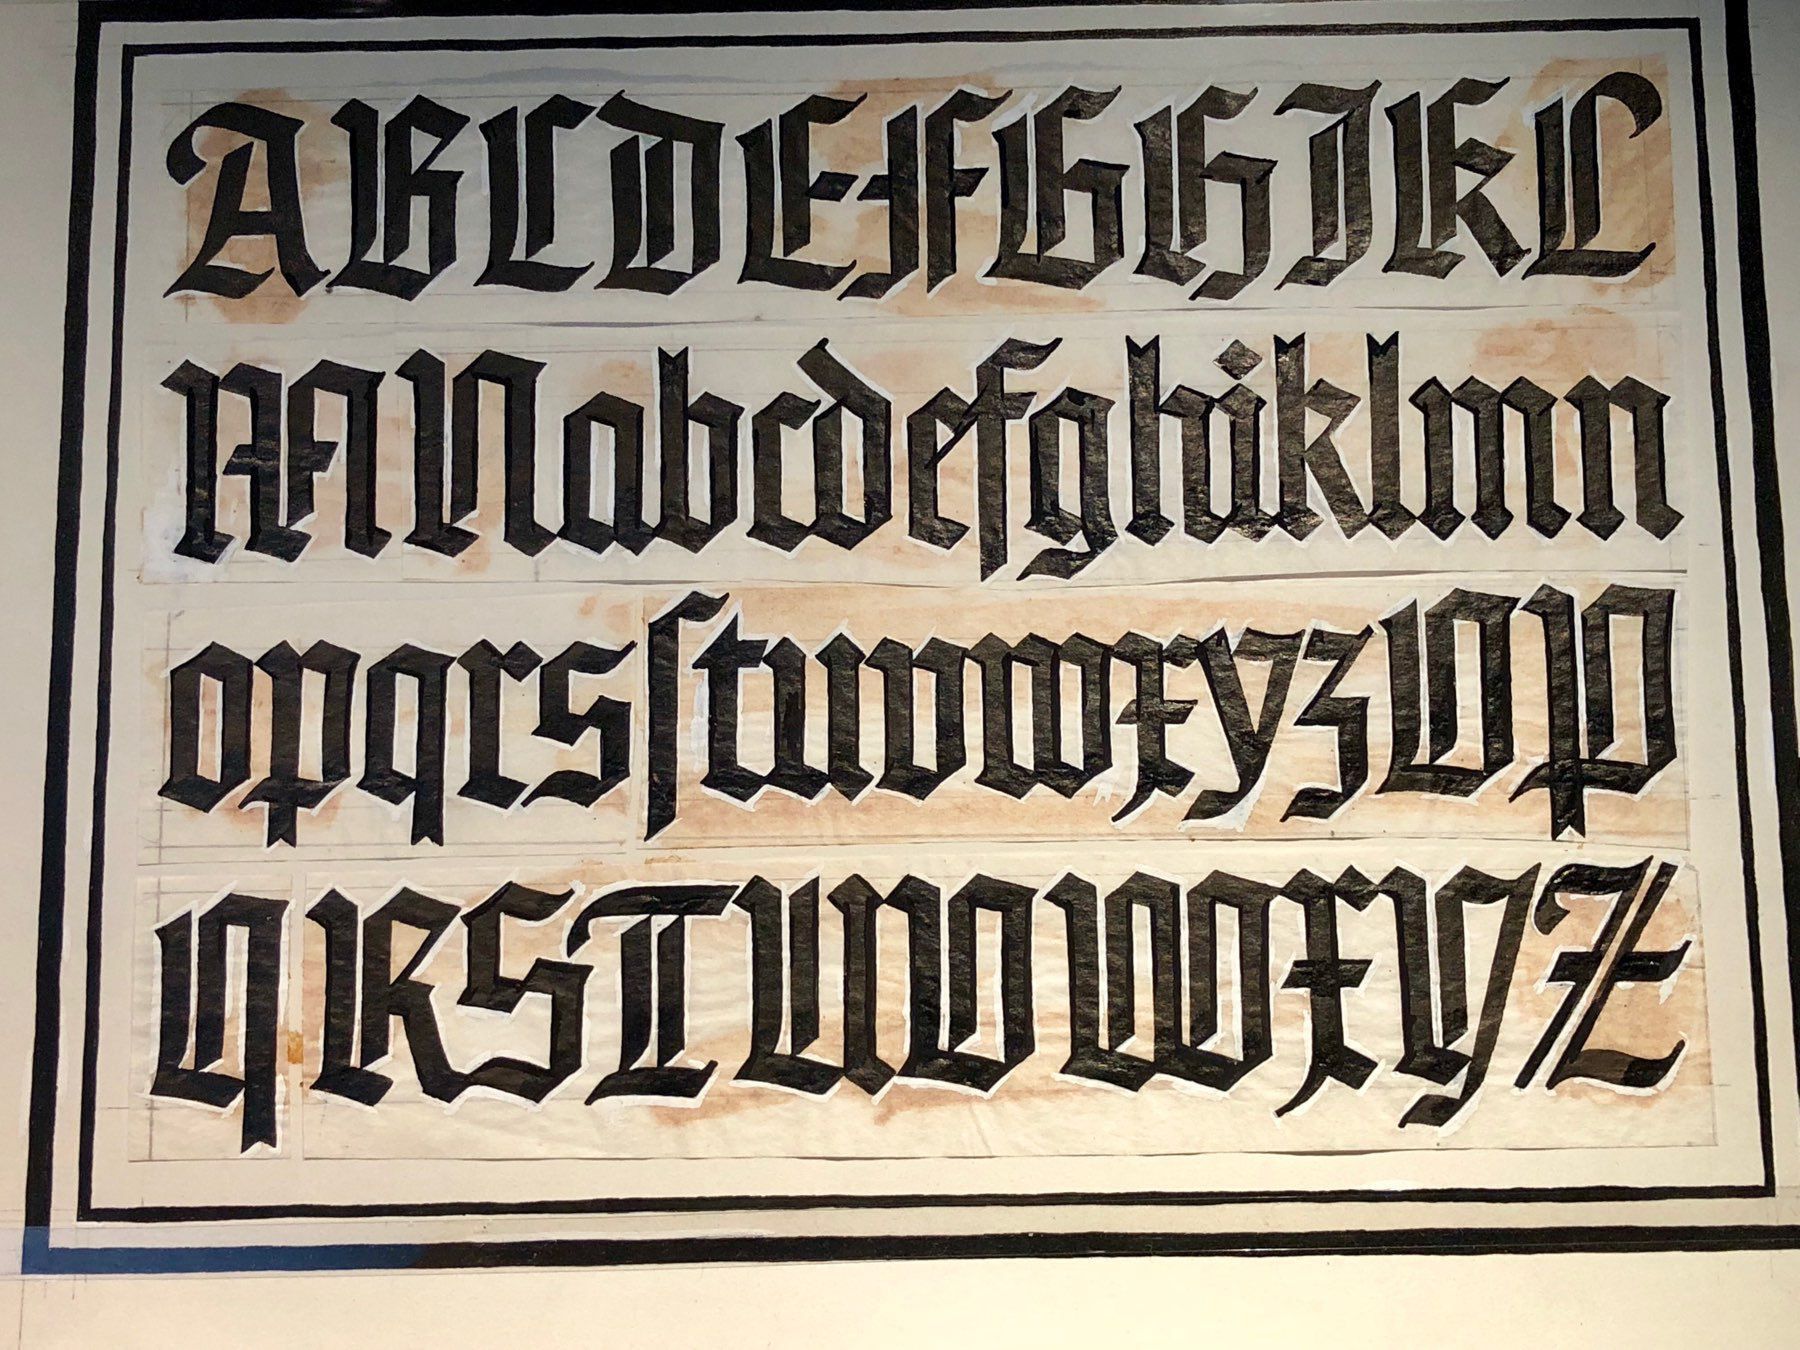 ABCDEFGHIKL
MNabcdefghiklmn
opqrsſtuvwxyzOP
QRSTUVWXYZ